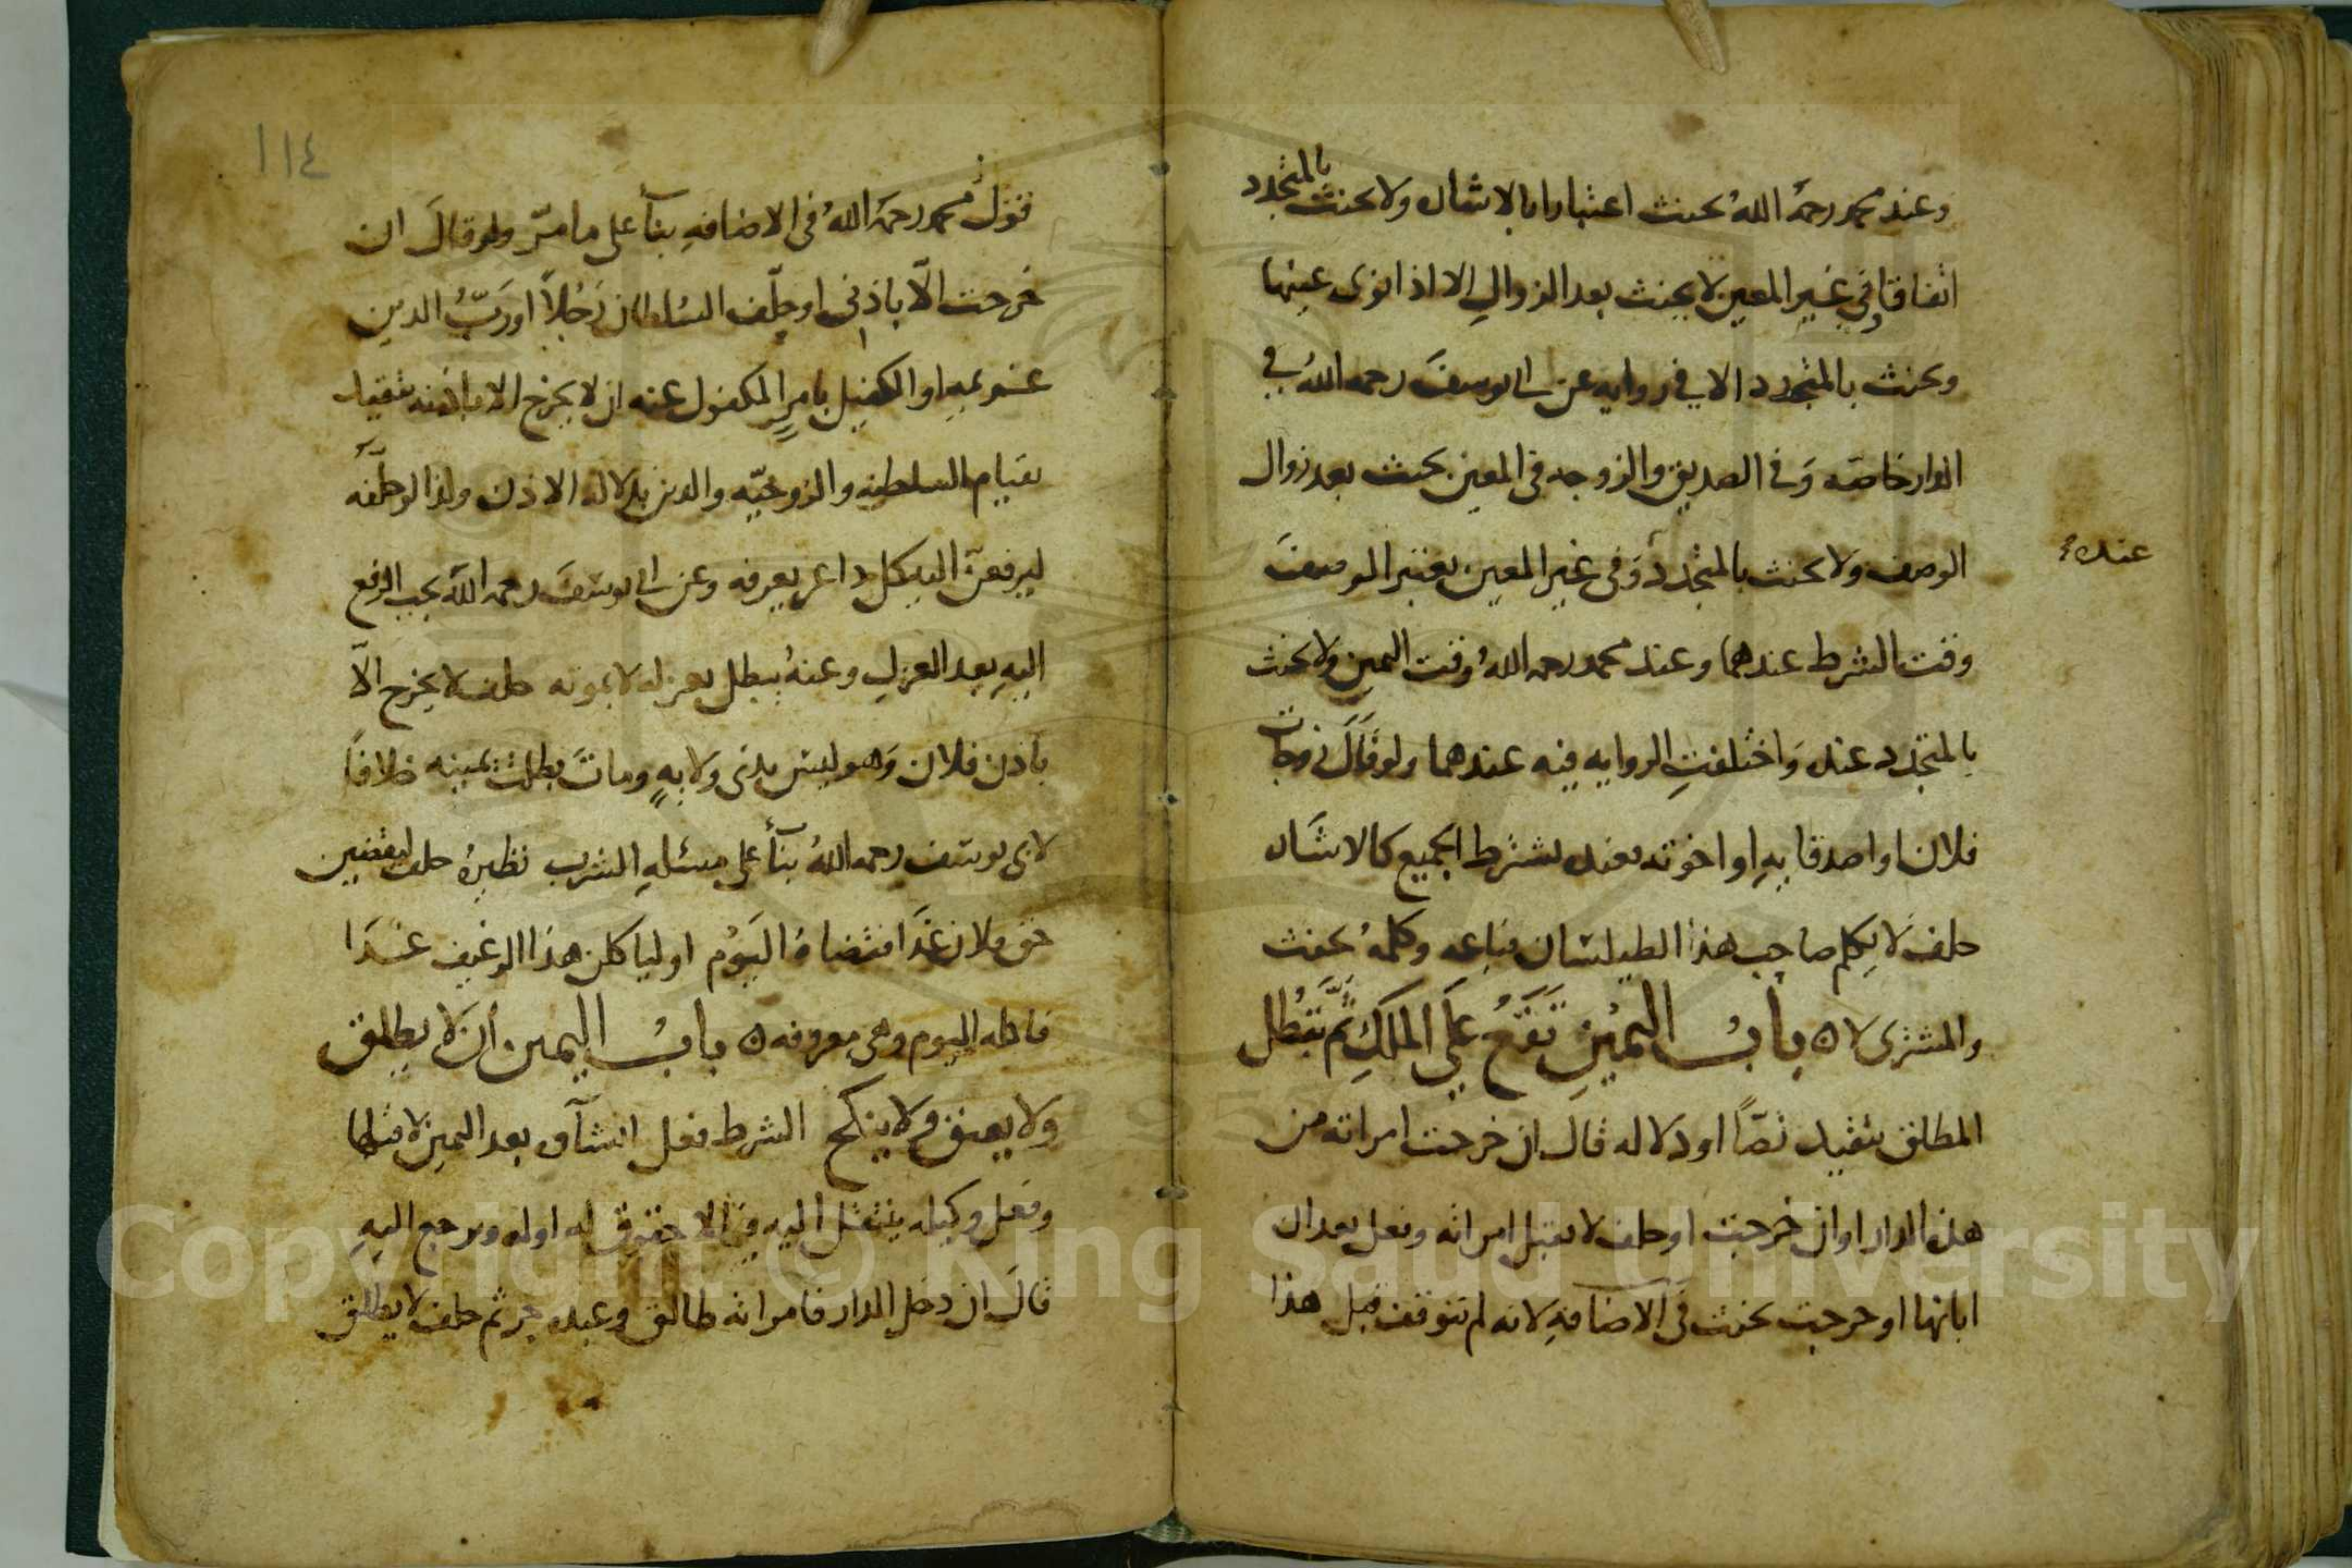 وعند محمد رحمه الله يحنث اعتبارا بالاشاره ولا يحنث بالمتجدد
اتفاقا وفي غير المعين لا يحنث بعد الزوال الا اذا نوى عينها
ويحنث بالمتجدد الا في روايه عن ابي يوسف رحمه الله في
الدار خاصه وفي الصديق والزوجه في المعين يحنث بعد زوال
الوصف ولا يحنث بالمتجدد وفي غير المعين يعتبر الوصف
عنده
وقت الشرط عندهما وعند محمد رحمه الله وقت اليمين ولا يحنث
بالمتجدد عنده واختلفت الروايه فيه عندهما ولو قال زوجات
فلان او اصدقايه او اخوته فعنده يشترط الجميع كالاشاره
حلف لا يكلم صاحب هذا الطيلسان فباعه وكلمه يحنث
والمشتري لا ه باب اليمين تقع على الملك ثم تبطل
المطلق يتقيد نصا او دلاله قال ان خرجت امراته من
هذه الدار او ان خرجت او حلف لا يقبل امراته وفعل بعد ان
ابانها او خرجت يحنث في الاضافه لانه لم تتوقف قبل هذا
١١٤
قول محمد رحمه الله في الاضافه بناء على ما مر ولو قال ان
خرجت الا باذني او حلف السلطان رجلا او رب الدين
غريمه او الكفيل بامر المكفول عنه ان لا يخرج الا باذنه يتقيد
بقيام السلطنه والزوجيه والدين بدلاله الاذن ولذا لو حلفه
ليرفعن اليه كل داعر يعرفه وعن ابي يوسف رحمه الله يجب الرفع
اليه بعد العزل وعنه يبطل بعزله لا بموته حلف لا يخرج الا
باذن فلان وهو ليس بذي ولايه ومات بطلت يمينه خلافا
لابي يوسف رحمه الله بناء على مسئله الشرب نظيره حلف ليقضين
حق فلان غدا فقضاه اليوم او لياكلن هذا الرغيف غدا
فاكله اليوم وهي معروفه ه باب اليمين ان لا يطلق
ولا يعتق ولا ينكح الشرط فعل انشاه بعد اليمين لا قبلها
وفعل وكيله ينتقل اليه في الا حقوق له اوله ويرجع اليه
قال ان دخل الدار فامراته طالق وعبده حر ثم حلف لا يطلق
Copyright © King Saud University